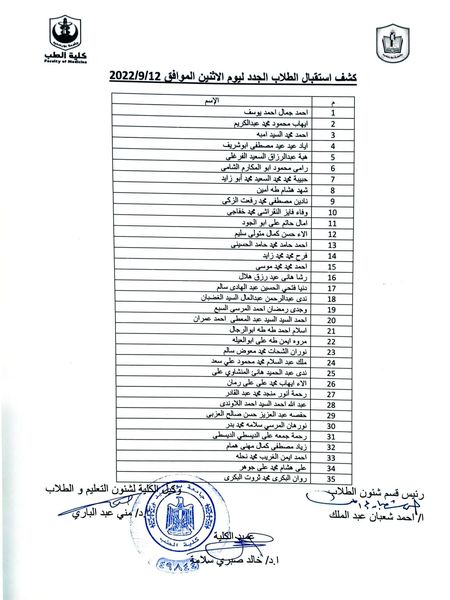 كلية الطب
Faculty of Medicine
كشف استقبال الطلاب الجدد ليوم الاثنين الموافق 2022/9/12
م الإسم
1 احمد جمال احمد يوسف
2 ايهاب محمود محمد عبدالكريم
3 احمد محمد السيد امبه
4 اياد عيد عيد مصطفي ابوشريف
5 هبة عبدالرزاق السعيد الفرغلي
6 رامي محمود ابو المكارم الشامي
7 حبيبة محمد محمد السعيد محمد أبو زايد
8 شهد هشام طه أمين
9 نادين مصطفي محمد رفعت الزكي
10 وفاء فايز النقراشي محمد خفاجي
11 امال حاتم علي ابو الجود
12 الاء حسن كمال متولي سليم
13 احمد حامد محمد حامد الحسيني
14 فرح محمد محمد زايد
15 احمد محمد محمد موسي
16 رشا هاني عيد رزق هلال
17 دنيا فتحي الحسين عبد الهادى سالم
18 ندى عبدالرحمن عبدالعال السيد الغضبان
19 وجدى رمضان احمد المرسي السبع
20 احمد السيد السيد عبد المعطي احمد عمران
21 اسلام احمد طه طه ابوالرجال
22 مروه ايمن طه علي ابوالعيله
23 نوران الشحات محمد معوض سالم
24 ملك عبد السلام محمد محمود علي سعد
25 ندى عبد الحميد هاني المنشاوي علي
26 الاء ايهاب محمد علي علي رمان
27 رحمة أنور منجد محمد عبد القادر
28 عبد الله احمد السيد احمد اللاوندى
29 حفصه عبد العزيز حسن صالح العزبي
30 نورهان المرسي سلامه محمد بدر
31 رحمة جمعه علي الديسطي الديسطي
32 زياد مصطفي كمال مهني همام
33 احمد ايمن الغريب محمد نحله
34 علي هشام محمد علي جوهر
35 روان البكرى محمد ثروت البكرى
رئيس قسم شئون الطلاب
وكيل الكلية لشئون التعليم و الطلاب
ا/ احمد شعبان عبد الملك
د/ مني عبد الباري
عميد الكلية
ا.د/ خالد صبري سلامة
كلية الطب